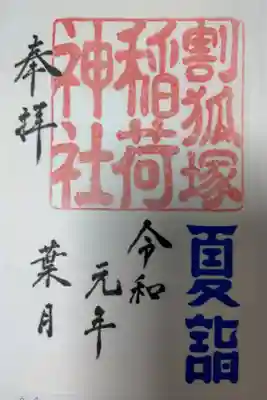 奉拝
割狐塚
稲荷
神社
夏詣
令和
元年
葉月